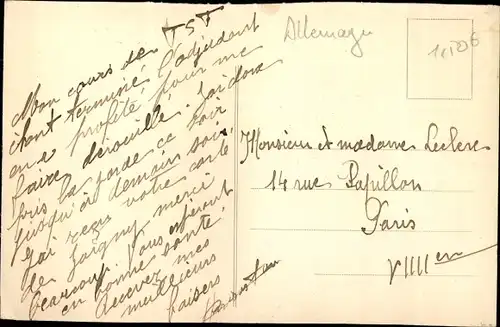 Mon cours de TSF
étant terminé l'adjudant
en a profité pour me
faire dérouillé. J'ai donc
pris la garde ce soir
jusqu'à demain soir
j'ai reçu votre carte
de Joigny merci
beaucoup. Vous espérant
en bonne santé.
Recevez mes
meilleurs
baisers
Allemagne
Monsieur et madame Leclerc
14 rue Papillon
Paris
VIIII em